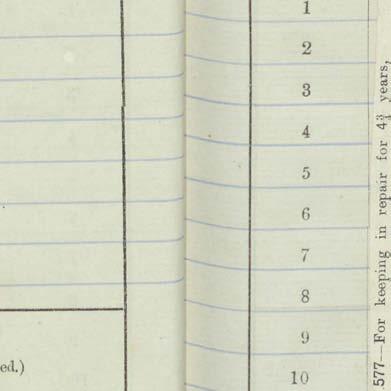 ed.)
1
2
3
4
5
6
7
8
9
10
577—For keeping in repair for 4¾ years,